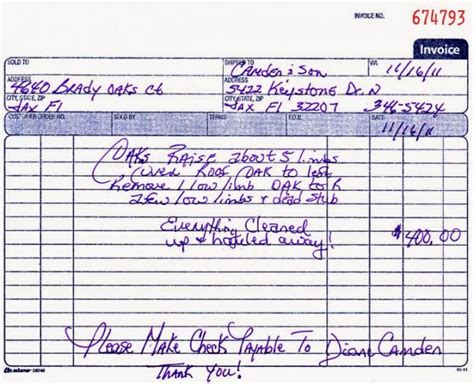 INVOICE NO. 674793
Invoice
SOLD TO
SHIPPED TO Camden & Son
VIA 11/16/11
ADDRESS 4640 BRADY OAKS Ct
ADDRESS 5422 Keystone Dr. N
CITY, STATE, ZIP Jax Fl
CITY, STATE, ZIP Jax Fl 32207 346-5424
CUSTOMER ORDER NO. SOLD BY TERMS F.O.B. DATE 11/16/11
OAKs RAISE about 5 limbs
over ROOF OAK to left
Remove 1 low limb OAK to R
a few low limbs & dead stub
Everything Cleaned
up & hauled away! $400.00
Please Make Check Payable To Diane Camden
THANK YOU!
adams